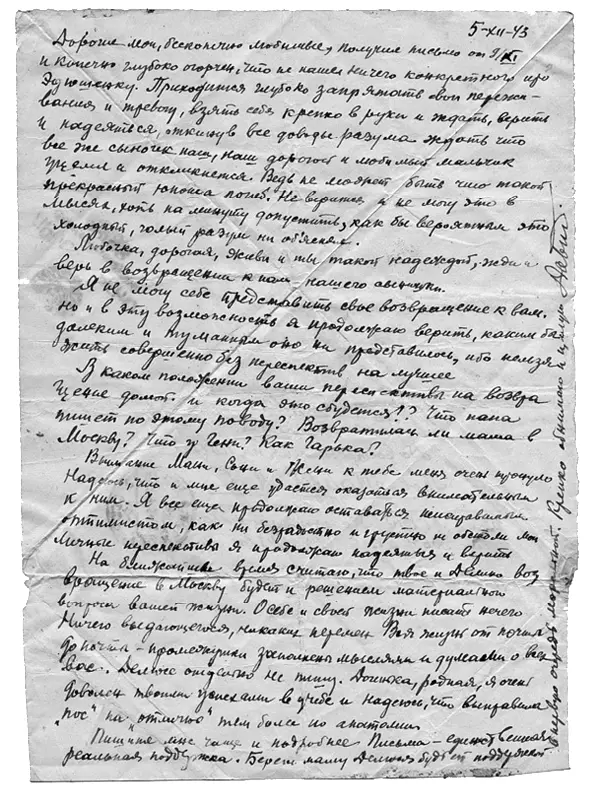 5-XII-43
Дорогие мои, бесконечно любимые, получил письмо от 9/XI
и конечно глубоко огорчен, что не нашел ничего конкретного про
Эдюшеньку. Приходится глубоко запрятать свои пережи-
вания и тревогу, взять себя крепко в руки и ждать, верить
и надеяться, откинув все доводы разума ждать что
все же сыночек наш, наш дорогой и любимый мальчик
уцелел и откликнется. Ведь не может быть что такой
прекрасный юноша погиб. Не верится и не могу это в
мыслях, хоть на минуту допустить, как бы вероятным это
холодный, голый разум ни объяснял.
Любочка, дорогая, живи и ты такой надеждой, жди и
верь в возвращении к нам нашего
Я не могу себе представить свое возвращение к вам,
но и в эту возможность я продолжаю верить, каким бы
далеким и туманным оно ни представилось, ибо нельзя
жить совершенно без перспектив на лучшее
В каком положении ваши перспективы на возвра
щение домой и когда это сбудется?? Что папа
пишет по этому поводу? Возвратилась ли мама в
Москву? Что у Гени? Как Гарька?
Внимание Мани, Сони и Жени к тебе меня очень тронуло
Надеюсь, что и мне еще удастся оказаться внимательным
к ним. Я все еще продолжаю оставаться неисправимым
оптимистом, как ни безрадостно и грустно ни обстоят мои
личные перспективы я продолжаю надеяться и верить
На ближайшее время считаю, что твое и Делино воз
вращение в Москву будет и решением материального
вопроса вашей жизни. О себе и своей жизни писать нечего
Ничего выдающегося, никаких перемен Вся жизнь от почты
до почты - промежутки заполнены мыслями и думами о всех
вас. Делюсе отдельно не пишу. Доченька, родная, я очень
доволен твоими успехами в учебе и надеюсь, что выправила
"пос" на "отлично" тем более по анатомии
Пишите мне чаще и подробнее Письма - единственная
реальная поддержка. Береги маму Делюся будь ей поддержкой
в первую очередь моральной. Крепко обнимаю и целую Давид.